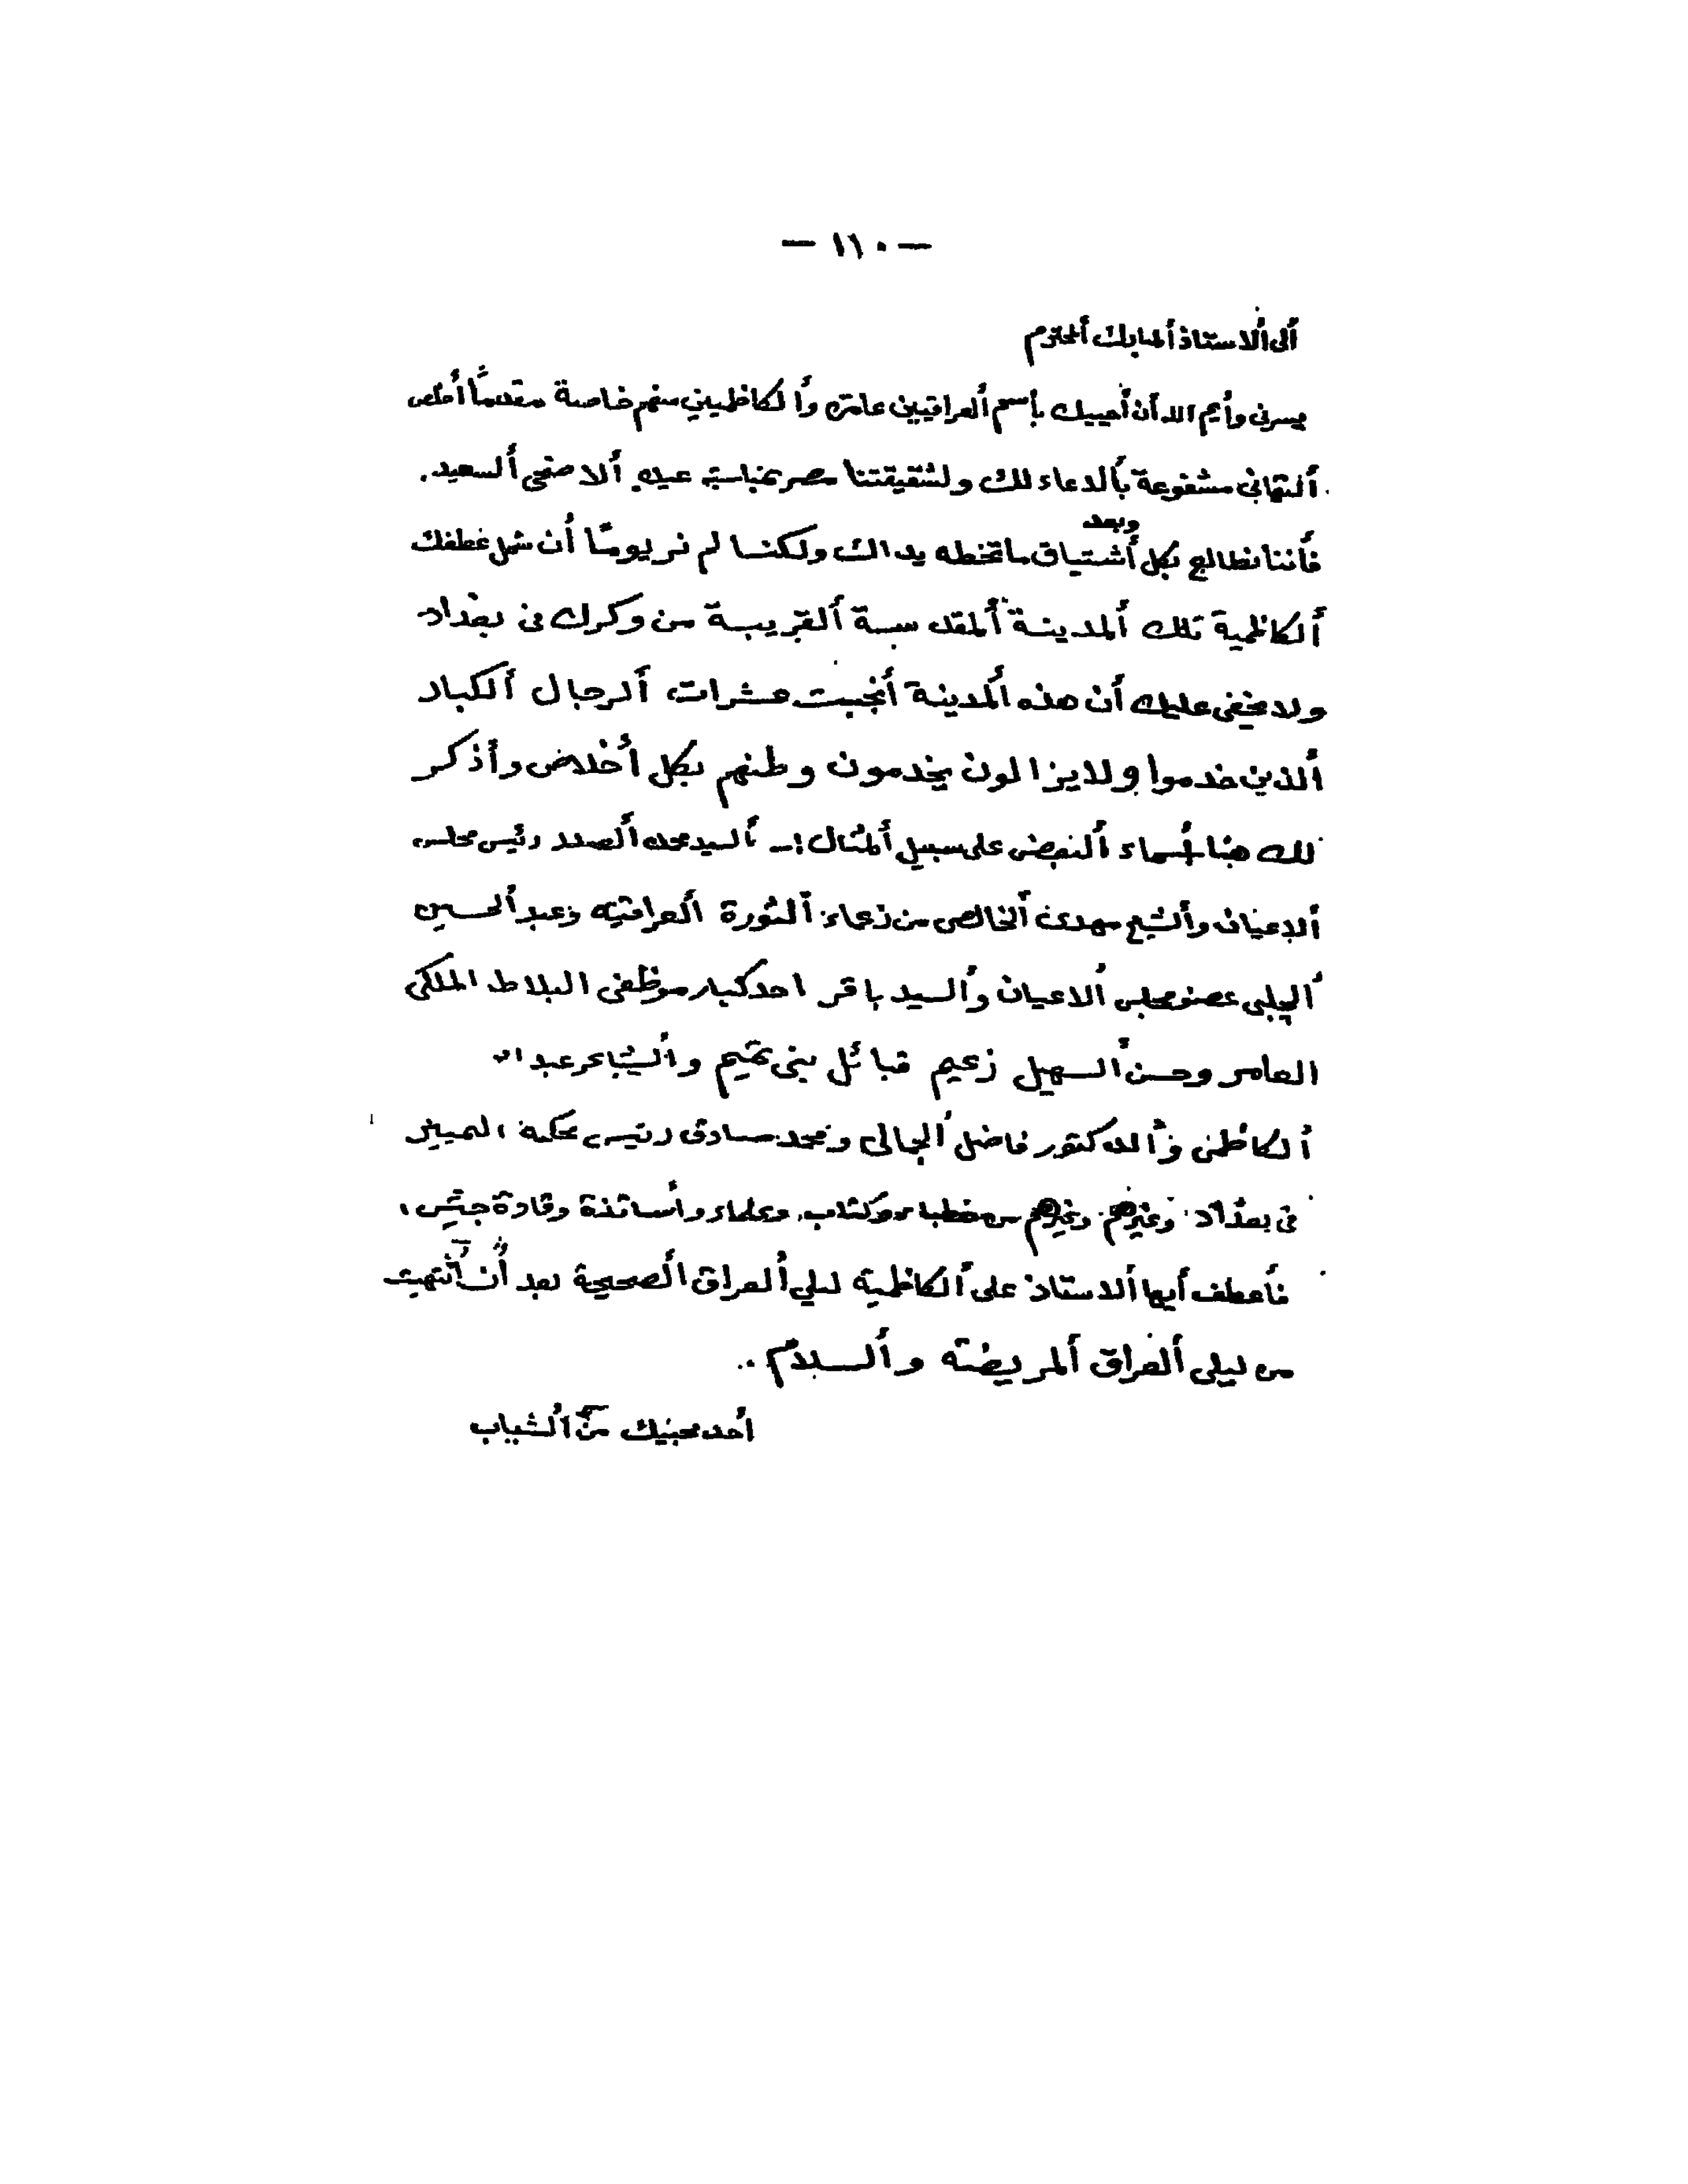 — ١١٠ —
ألى ألاستاذ ألمبارك ألمحترم
يسرنى وأيم الله أن أحييك بأسم ألعراقيين عامة وألكاظميين منهم خاصة مقدماً أخلص
ألتهانى مشفوعة بألدعاء لك ولشقيقتنا مصر بمناسبة عيد ألاضحى ألسعيد.
وبعد
فأننا نطالع بكل أشتياق ما تخطه يداك ولكننا لم نر يوماً أن شمل عطفك
ألكاظمية تلك ألمدينة ألمقدسة ألقريبة من وكرك فى بغداد
ولا يخفى عليك أن هذه ألمدينة أنجبت عشرات ألرجال ألكبار
ألذين خدموا ولا يزالون يخدمون وطنهم بكل أخلاص وأذكر
لك هنا أسماء ألبعض على سبيل ألمثال :ـ ألسيد محمد ألصدر رئيس مجلس
ألاعيان وألشيخ مهدى ألخالصى من زعماء ألثورة ألعراقية وعبد ألحسين
ألچلبى عضو مجلس ألاعيان وألسيد باقر احد كبار موظفى البلاط الملكى
العامر وحسن ألسهيل زعيم قبائل بنى تميم وألشاعر عبد
ألكاظمى وألدكتور فاضل ألجمالى ومحمد صادق رئيس محكمة التمييز
فى بغداد وغيرهم وغيرهم من خطباء وكتاب وعلماء وأساتذة وقادة جيش،
فأعطف أيها ألاستاذ على ألكاظمية ليلى ألعراق ألصحيحة بعد أن أنتهيت
من ليلى ألعراق ألمريضة وألسلام..
أحد محبيك من ألشباب